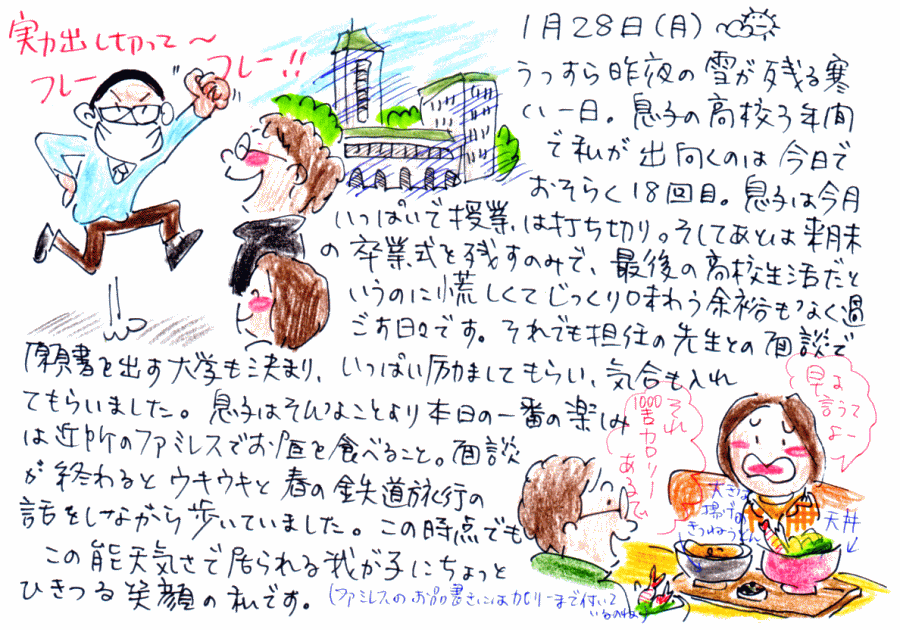 実力出し切って～
フレー フレー!!
1月28日(月)
うっすら昨夜の雪が残る寒
い一日。息子の高校3年間
で私が出向くのは今日で
おそらく18回目。息子は今月
いっぱいで授業は打ち切り。そしてあとは来月末
の卒業式を残すのみで、最後の高校生活だと
いうのに慌しくてじっくり味わう余裕もなく過
ごす日々です。それでも担任の先生との面談で
願書を出す大学も決まり、いっぱい励ましてもらい、気合も入れ
てもらいました。息子はそんなことより本日の一番の楽しみ
は近所のファミレスでお昼を食べること。面談
が終わるとウキウキと春の鉄道旅行の
話をしながら歩いていました。この時点でも
この能天気さで居られる我が子にちょっと
ひきつる笑顔の私です。
(ファミレスのお品書きにはカロリーまで付いて
いるのね
それ
1000カロリー
あるで
早よ
言うて
よー
大きな
揚げの
きつねうどん
天丼